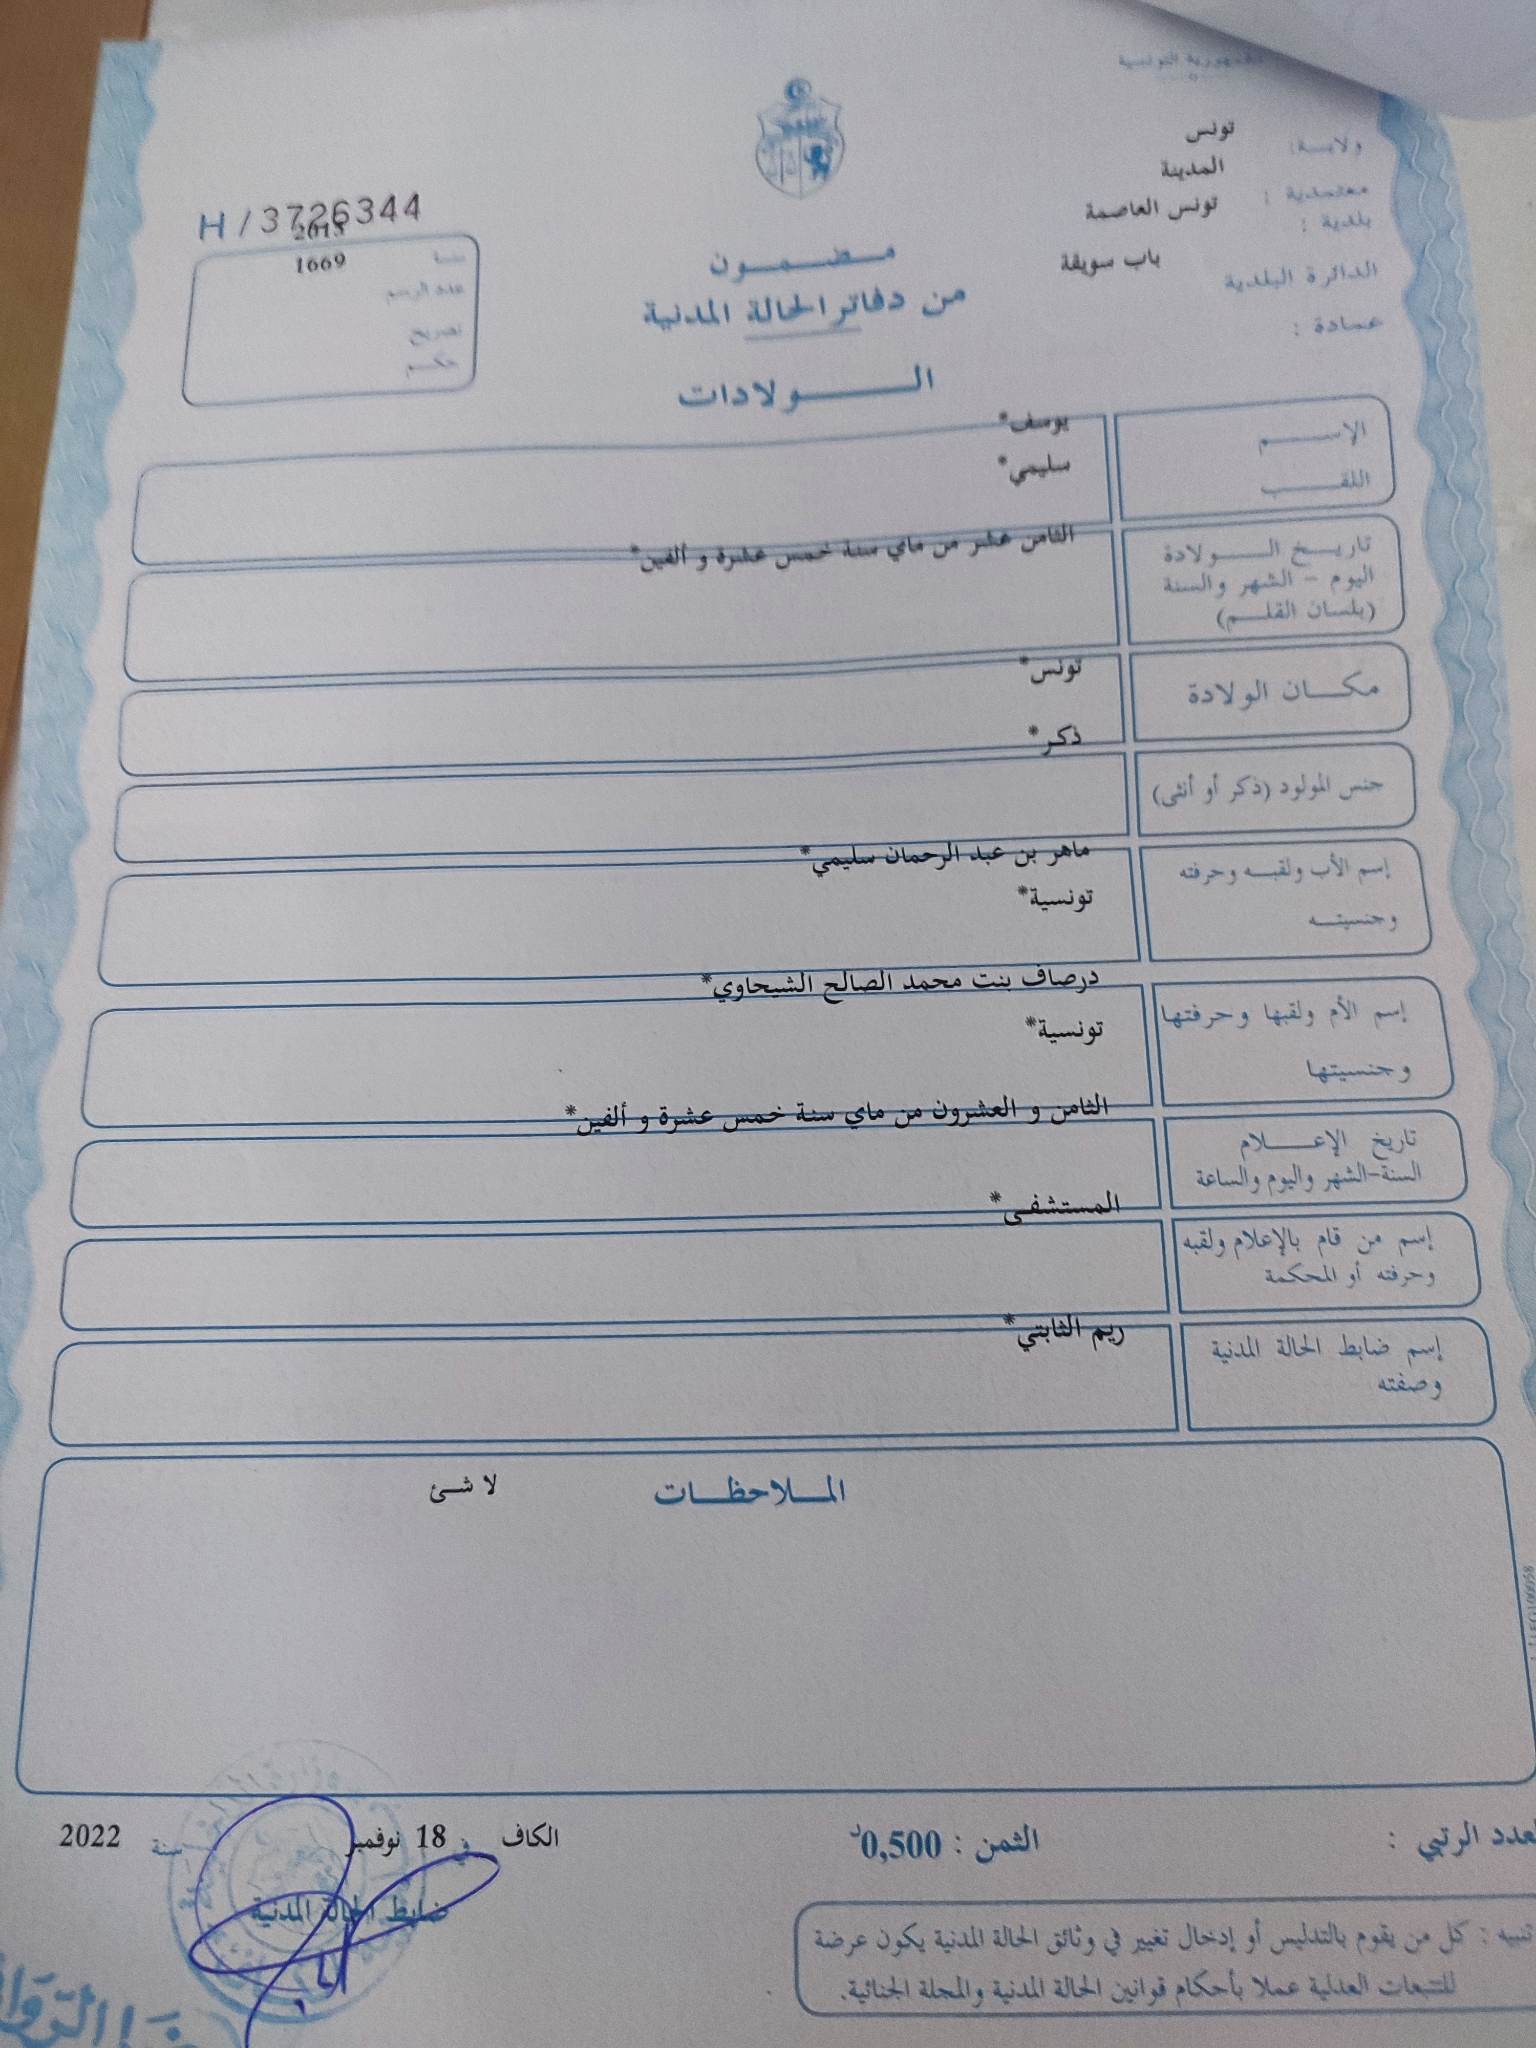 الجمهورية التونسية
ولايـة: تونس
معتمدية : المدينة
بلدية : تونس العاصمة
الدائرة البلدية باب سويقة
عمادة :
H/3726344
سنة 2015
عدد الرسم 1669
تصريح
حكـم
مـضـمـون
من دفاتر الحالة المدنية
الــولادات
الإســـم يوسف*
اللقـــب سليمي*
تاريـخ الـــولادة الثامن عشر من ماي سنة خمس عشرة و ألفين*
اليوم - الشهر والسنة
(بلسان القلـم)
مكـــان الولادة تونس*
جنس المولود (ذكر أو أنثى) ذكر*
إسم الأب ولقبـه وحرفته ماهر بن عبد الرحمان سليمي*
وجنسيتـه تونسية*
إسم الأم ولقبها وحرفتها درصاف بنت محمد الصالح الشيحاوي*
وجنسيتها تونسية*
تاريخ الإعـــلام الثامن و العشرون من ماي سنة خمس عشرة و ألفين*
السنة-الشهر واليوم والساعة
إسم من قام بالإعلام ولقبه المستشفى*
وحرفته أو المحكمة
إسم ضابط الحالة المدنية ريم الثابتي*
وصفته
المـلاحظـات لا شئ
العدد الرتبي :
الثمن : 0,500د
الكاف في 18 نوفمبر سنة 2022
ضابط الحالة المدنية
تنبيه : كل من يقوم بالتدليس أو إدخال تغيير في وثائق الحالة المدنية يكون عرضة
للتتبعات العدلية عملا بأحكام قوانين الحالة المدنية والمجلة الجنائية.